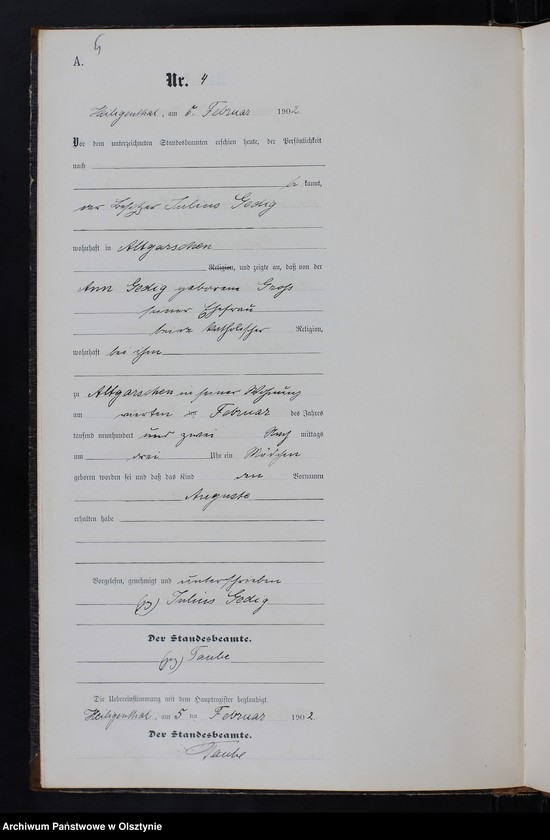 A.
Nr. 4
Heiligenthal, am 5. Februar 1902
Vor dem unterzeichneten Standesbeamten erschien heute, der Persönlichkeit
nach
be kannt,
der Besitzer Julius Gedig
wohnhaft in Altgarschen
Religion, und zeigte an, daß von der
Ann Gedig geborene Groß
seiner Ehefrau
beide katholischer Religion,
wohnhaft bei ihm
zu Altgarschen in seiner Wohnung
am vierten Februar des Jahres
tausend neunhundert und zwei Nach mittags
um drei Uhr ein Mädchen
geboren worden sei und daß das Kind den Vornamen
Auguste
erhalten habe
Vorgelesen, genehmigt und unterschrieben
(gz) Julius Gedig
Der Standesbeamte.
(gz) Taube
Die Uebereinstimmung mit dem Hauptregister beglaubigt.
Heiligenthal, am 5 ten Februar 1902.
Der Standesbeamte.
Taube
Archiwum Państwowe w Olsztynie